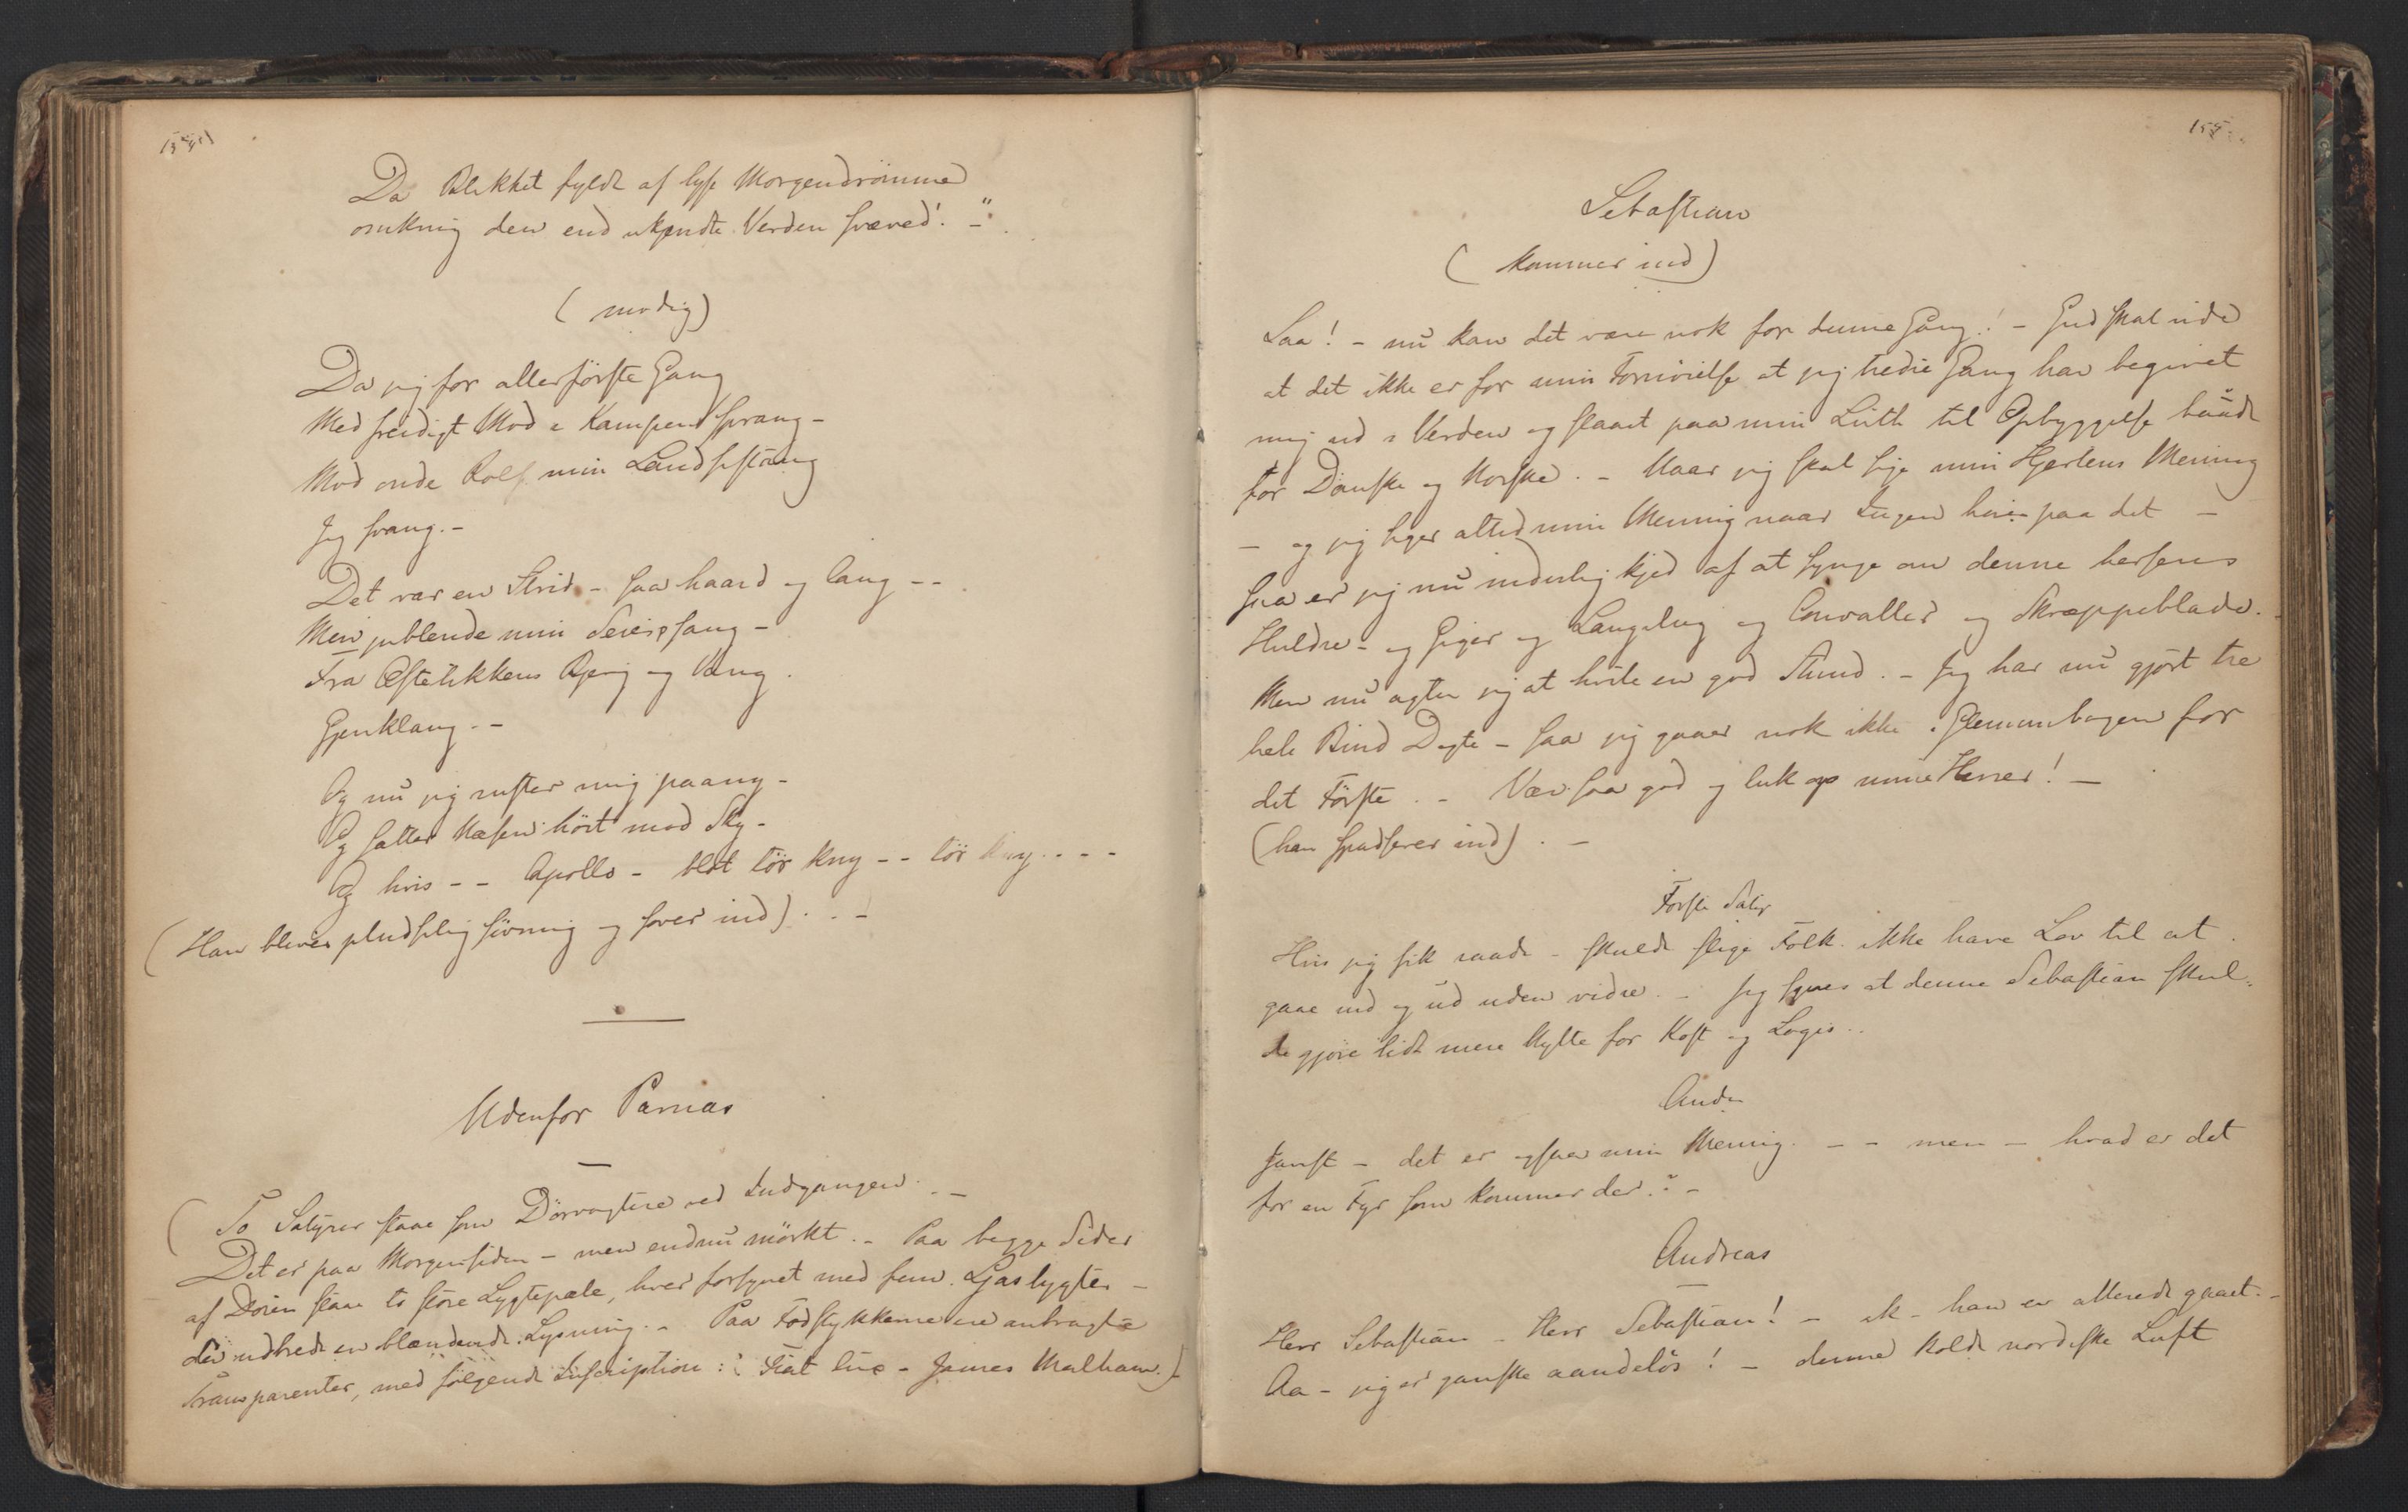 Da Blikket fyldt af lyse Morgendrömme
omkring den end ukjendte Verden sværed! – "
(modig)
Da jeg for allerförste Gang
Med freidigt Mod i Kampen sprang –
Mod onde Rolf min Landsestang
Jeg svang. –
Det var en Strid – saa haard og lang – –
Men jublende min Seierssang –
Fra Efteblikkens Bjerg og Vang
Gjenklang. –
Og nu jeg ruster mig paany –
Og sætter Næsen höit mod Sky –
Og hvis – – Apollo – blot tör kny – – tör kny . . – –
(Han bliver pludselig sövnig og sover ind) . – –
Udenfor Parnas
(To Satyrer staae som Dörvogtere ved Indgangen. –
Det er paa Morgensiden – men endnu mörkt. – Paa begge Sider
af Dören staae to store Lygtepæle, hver forsynet med fem Gaslygter –
der udbrede en blændende Lysning. – Paa Fodstykkerne ere anbragte
Transparenter, med fölgende Inscription: Fiat lux – James Malham.)
155
Sebastian
(kommer ind)
Saa! – nu kan det være nok for denne Gang! – Gud skal vide
at det ikke er for min Fornöielse at jeg tredie Gang har begivet
mig ud i Verden og slaaet paa min Luth til Opbyggelse baade
for Danske og Norske. – Naar jeg skal sige min Hjertens Mening
– og jeg siger altid min Mening naar Ingen hörer paa det –
saa er jeg nu inderlig kjed af at synge om denne hersens
Huldre – og Giger og Langeleg og Convaller og Skræppeblade.
Men nu agter jeg at hvile en god Stund. – Jeg har nu gjört tre
hele Bind Digte – saa jeg gaaer nok ikke i Glemmebogen for
det Förste. – Vær saa god og luk op mine Herrer! –
(han spadserer ind) . –
Förste Satyr
Hvis jeg fik raade – skulde slige Folk ikke have Lov til at
gaae ind og ud uden videre. – Jeg synes at denne Sebastian skul-
de gjöre lidt mere Nytte for Kost og Logis. .
Anden
Sandt – det er ogsaa min Mening. – – men – hvad er det
for en Fyr som kommer der? –
Andreas
Herr Sebastian – Herr Sebastian! – ak – han er allerede gaaet. –
Aa – jeg er ganske aandelös! – denne kolde nordiske Luft